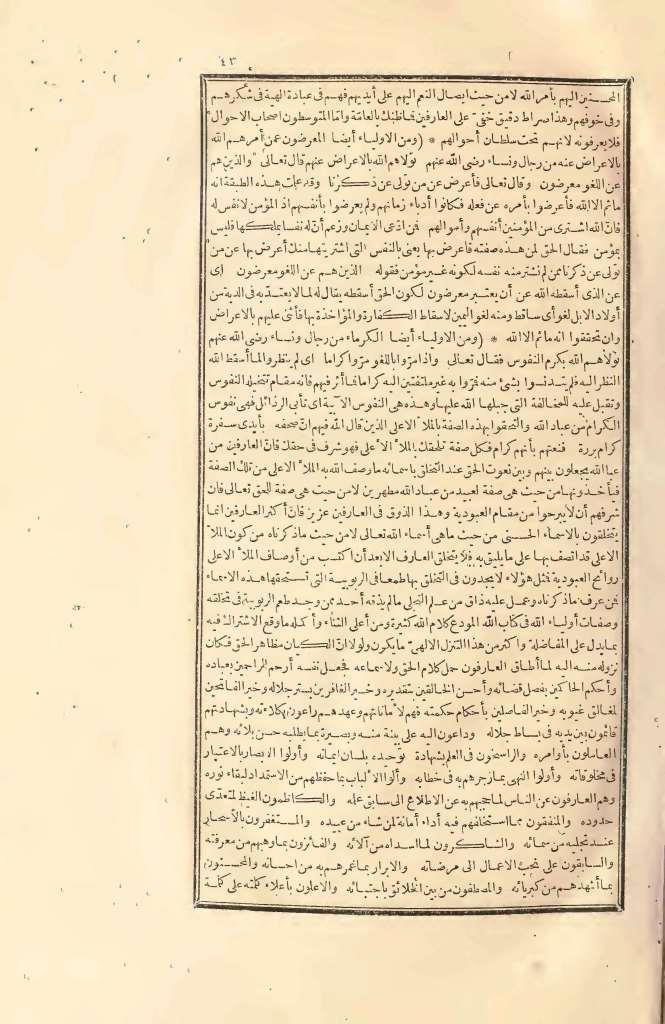 ٤٣
المحسنين اليهم بأمر الله لا من حيث ايصال النعم اليهم على أيديهم فهم فى عبادة الهية فى شكرهم
وفى خوفهم وهذا صراط دقيق خفى على العارفين فما ظنك بالعامة وأما المتوسطون أصحاب الاحوال
فلا يعرفونه لانهم تحت سلطان أحوالهم * (ومن الاولياء أيضا المعرضون عمن أمرهم الله
بالاعراض عنه من رجال ونساء رضى الله عنهم تولاهم الله بالاعراض عنهم قال تعالى والذين هم
عن اللغو معرضون وقال تعالى فأعرض عن من تولى عن ذكرنا وقد علمت هذه الطبقة انه
ما ثم الا الله فأعرضوا بأمره عن فعله فكانوا أدباء زمانهم ولم يعرضوا بأنفسهم اذ المؤمن لا نفس له
فان الله اشترى من المؤمنين أنفسهم وأموالهم فمن ادعى الايمان وزعم أن له نفسا يملكها فليس
بمؤمن فقال الحق لمن هذه صفته فاعرض بها يعنى بالنفس التى اشتريتها منك أعرض بها عن من
تولى عن ذكرنا ممن لم نشتر منه نفسه لكونه غير مؤمن فقوله الذين هم عن اللغو معرضون أى
عن الذى أسقطه الله عن أن يعتبر معرضون لكون الحق أسقطه يقال له لما لا يعتد به فى الدية من
أولاد الابل لغو أى ساقط ومنه لغو اليمين لاسقاط الكفارة والمؤاخذة بها فأثنى عليهم بالاعراض
وان تحققوا انه ما ثم الا الله * (ومن الاولياء أيضا الكرماء من رجال ونساء رضى الله عنهم
تولاهم الله بكرم النفوس فقال تعالى واذا مروا باللغو مروا كراما اى لم ينظروا لما أسقط الله
النظر اليه فلم يتدنسوا بشئ منه فمروا به غير ملتفتين اليه كراما فما أثر فيهم فانه مقام تستحليه النفوس
وتقبل عليه للمخالفة التى جبلها الله عليها وهذه هى النفوس الآبية أى تأبى الرذائل فهى نفوس
الكرام من عباد الله والتحقوا بهذه الصفة بالملأ الاعلى الذين قال الله فيهم ان صحفه بأيدى سفرة
كرام بررة فنعتهم بأنهم كرام فكل صفة تلحقك بالملأ الأعلى فهو شرف فى حقك فان العارفين من
عباد الله يجعلون بينهم وبين نعوت الحق عند التخلق باسمائه ما وصف الله به الملأ الاعلى من تلك الصفة
فيأخذونها من حيث هى صفة لعبيد من عباد الله مطهرين لا من حيث هى صفة للحق تعالى فان
شرفهم أن لا يبرحوا من مقام العبودية وهذا الذوق فى العارفين عزيز فان أكثر العارفين انما
يتخلقون بالاسماء الحسنى من حيث ما هى أسماء الله تعالى لا من حيث ما ذكرناه من كون الملأ
الاعلى قد اتصف بها على ما يليق به فلا يتخلق العارف الا بعد أن اكتسب من أوصاف الملأ الاعلى
روائح العبودية فمثل هؤلاء لا يجدون فى التخلق بها طعما فى الربوبية التى تستحقها هذه الاسماء
فمن عرف ما ذكرناه وعمل عليه ذاق من علم التجلى ما لم يذقه أحد ممن وجد طعم الربوبية فى تخلقه
وصفات أولياء الله فى كتاب الله المودع كلام الله كثيرة ومن أعلى الثناء وأكمله ما وقع الاشتراك فيه
بما يدل على المفاضلة وأكثر من هذا التنزل الالهى ما يكون ولولا ان الكيان مظاهر الحق فكان
نزوله منه اليه لما أطاق العارفون حمل كلام الحق ولا سماعه فجعل نفسه أرحم الراحمين بعباده
وأحكم الحاكمين بفصل قضائه وأحسن الخالقين بتقديره وخير الغافرين بستر جلاله وخير الفاتحين
لمغالق غيوبه وخير الفاصلين بأحكام حكمته فهم لأماناتهم وعهدهم راعون بكلاءته وبشهادتهم
قائمون بين يديه فى بساط جلاله وداعون اليه على بينة منه وبصيرة بما يطلبه حسن بلائه وهم
العاملون بأوامره والراسخون فى العلم بشهادة توحيده بلسان ايمانه وأولوا الابصار بالاعتبار
فى مخلوقاته وأولوا النهى بما زجرهم به فى خطابه وأولوا الألباب بما حفظهم من الاستمداد لبقاء نوره
وهم العارفون عن الناس لما حجبهم به عن الاطلاع الى سابق علمه والكاظمون الغيظ لمتعدى
حدوده والمنفقون مما استخلفهم فيه أداء أمانة لمن شاء من عبيده والمستغفرون بالأسحار
عند تجليه من سمائه والشاكرون لما أسداه من آلائه والفائزون بما وهبهم من معرفته
والسابقون على نجب الاعمال الى مرضاته والابرار بما غمرهم به من احسانه والمحسنون
بما أشهدهم من كبريائه والمصطفون من بين الخلائق باجتبائه والاعلون بأعلاء كلمته على كلمة